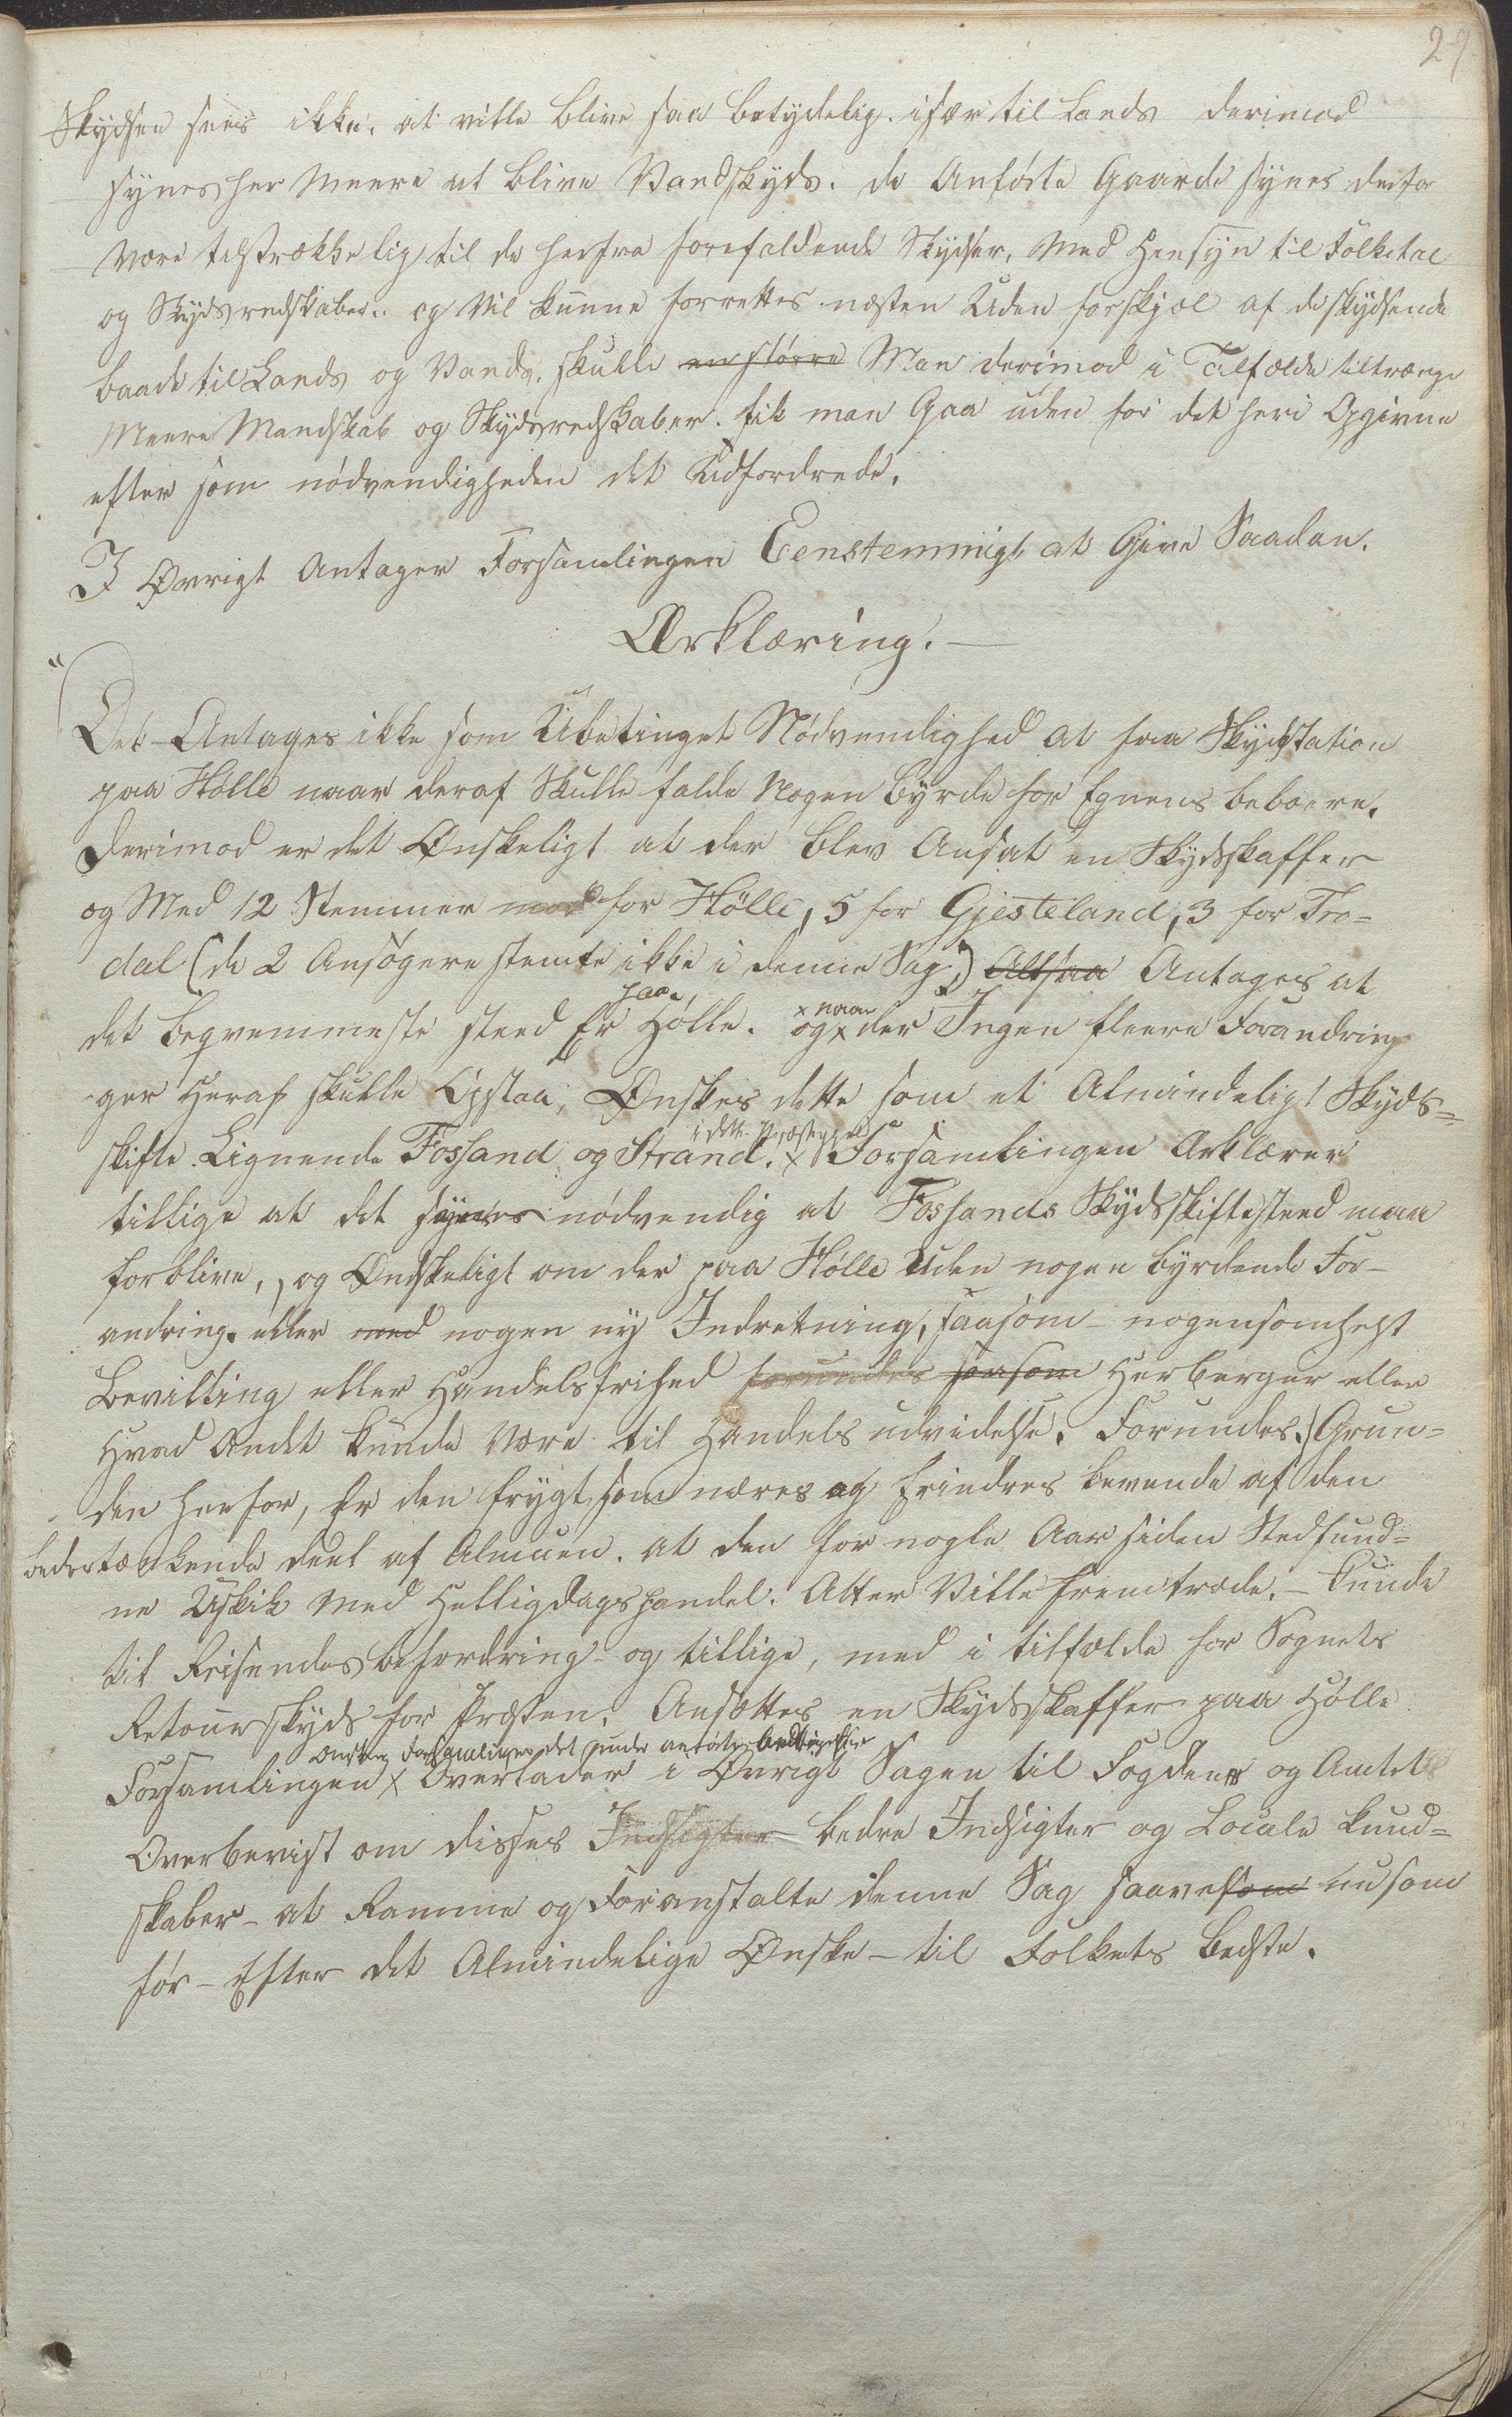 29
Skydsen sees ikke, at ville blive saa betydelig. især til Lands derimod
synes her meere at blive Vandskyds. de Anførte Gaarde synes derfor
være tilstrækkelig til de herfra forefaldende Skydser, med Hensyn til Folketal
og Skydsredskaber.. og vil kunne forrettes næsten Uden forskjæl af de skydsende
baade til Lands og Vands. skulle en større Man derimod i Tilfælde tiltrænge
Meere Mandskab og Skydsredskaber. fik man Gaa uden for det heri Opgivne
efter som nødvendigheden det Udfordrede.
I Øvrigt Antager Forsamlingen Eenstemmigt at Give Saadan.
Ærklæring. —
"Det Antages ikke som Ubetinget Nødvendighed at faa Skydstation
paa Hølle naar deraf Skulle falde Nogen byrde for Egnens beboere.
Derimod er det Ønskeligt at der blev Ansat en Skydsskaffer
og Med 12 Stemmer mod for Hølle, 5 for Gjesteland, 3 for Tro=
dal (de 2 Ansøgere stemte ikke i denne Sag,) Altsaa Antages at
det beqvemmeste sted Er paa, Hølle. og x naar der Ingen fleere Forandrin
ger Heraf skulle Opstaa, Ønskes dette som et Almindeligt Skyds=
skifte. Lignende Fossand og Strand. x i dette Præstegjel Forsamlingen Ærklærer
tillige at det synes nødvendig at Fossands Skydsskiftested maa
forblive, og Ønskeligt om der paa Hølle Uden nogen byrdende For-
andring. eller med nogen ny Indretning, saasom nogensomhelst
Bevilling eller Handelsfrihed forundes saasom Herberger eller
Hvad Andet kunde være til Handels udvidelse. Forundes.) Grun=
den herfor, Er den frygt som næres og Erindres levende af den
bedretænkende deel af Almuen. at den for nogle Aar siden Stedfund=
ne Uskik med Helligdagshandel. Atter Ville fremtræde. – kunde
til Reisendes befordring og tillige, med i tilfælde for Sognets
Retourskyds for Præsten. Ansættes en Skydsskaffer paa Hølle
Ønsker Forsamlingen det under anførte bedtingelser
Forsamlingen x Overlader i Øvrigt Sagen til Fogdens og Amtets
Overbevist om disses Indsigter bedre Indsigter og Locale kund=
skaber – at Ramme og Foranstalte denne Sag saavelsom nu som
før – Efter det Almindelige Ønske – til Folkets bedste.